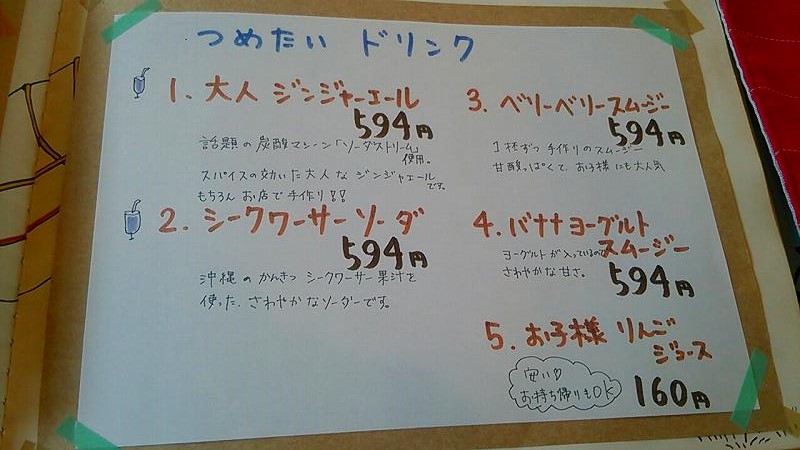 つめたい ドリンク
1. 大人 ジンジャーエール
594円
話題の炭酸マシーン「ソーダストリーム」
使用。
スパイスの効いた大人なジンジャエール
です。
もちろんお店で手作り!!
2. シークワーサーソーダ
594円
沖縄のかんきつ シークワーサー果汁を
使った、さわやかなソーダーです。
3. ベリーベリースムージー
594円
1杯ずつ手作りのスムージー
甘酸っぱくて、お子様にも大人気
4. バナナヨーグルト
スムージー
ヨーグルトが入っているので
さわやかな甘さ。
594円
5. お子様 りんご
ジュース
安い♡
お持ち帰りもOK
160円